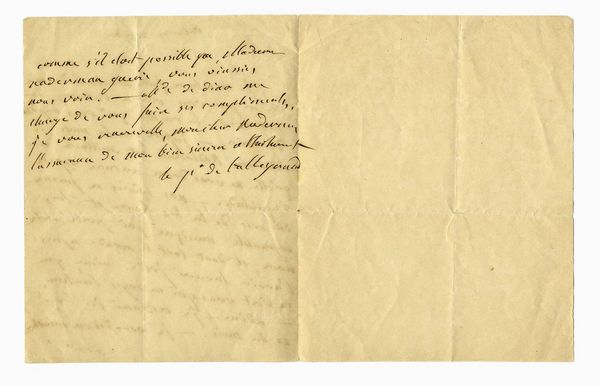 comme s'il etoit possible que, Madame
naderman guerie vous vinssiez
nous voir. — Mde de dino me
charge de vous faire ses compliments,
je vous renouvelle, Monsieur Naderman
l'assurance de mon bien sincere attachement
le pce de talleyrand